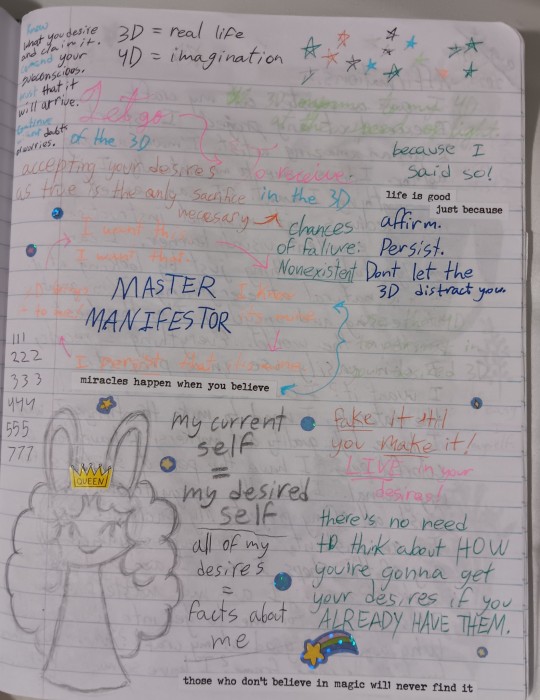 Know
what you desire
and claim it.
your
subconscious.
that it
will arrive.
doubts
worries.
3D = real life
4D = imagination
Let go
of the 3D
to receive.
because I
said so!
accepting your desires
as true is the only sacrifice in the 3D
necesary
life is good
just because
chances
of faliure:
Nonexistent
affirm.
Persist.
Dont let the
3D distract you.
I want this
I want that
I know
MASTER
MANIFESTOR
I persist
miracles happen when you believe
111
222
333
444
555
777
QUEEN
my current
self
=
my desired
self
all of my
desires
=
facts about
me
fake it till
you make it!
LIVE in your
desires!
there's no need
to think about HOW
you're gonna get
your desires if you
ALREADY HAVE THEM.
those who don't believe in magic will never find it